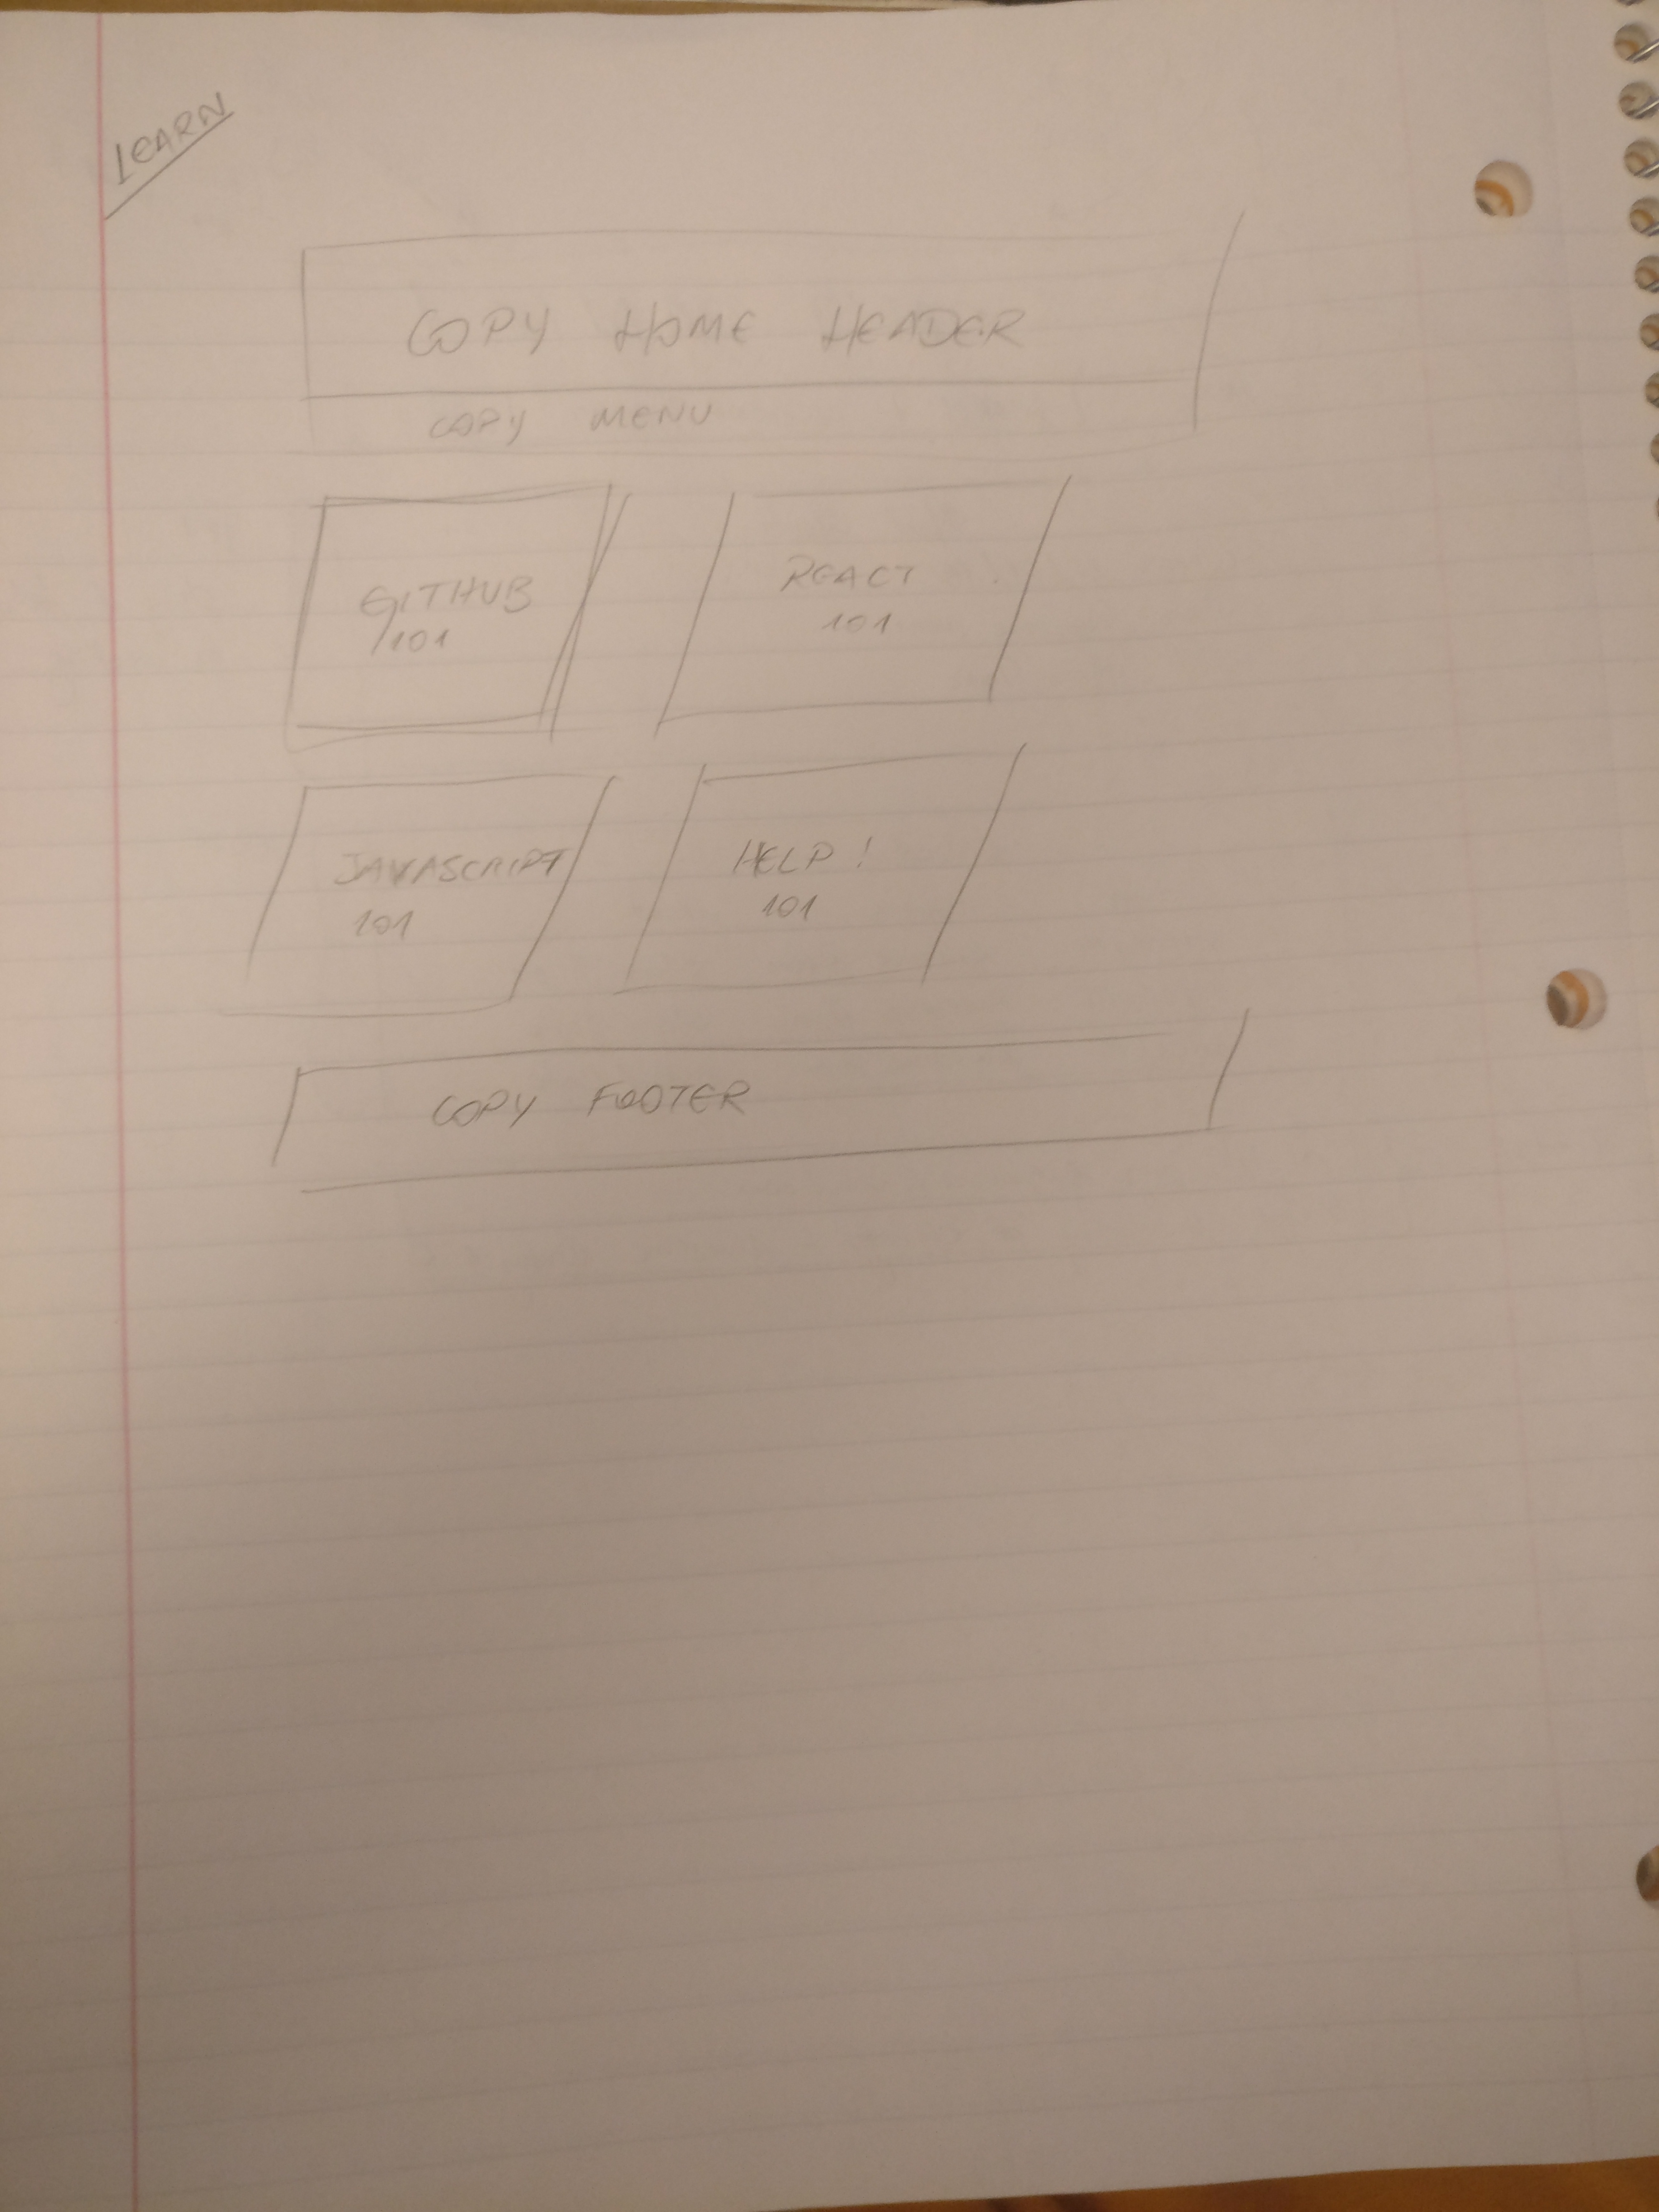 LEARN
COPY HOME HEADER
COPY MENU
GITHUB
101
REACT
101
JAVASCRIPT
101
HELP!
101
COPY FOOTER